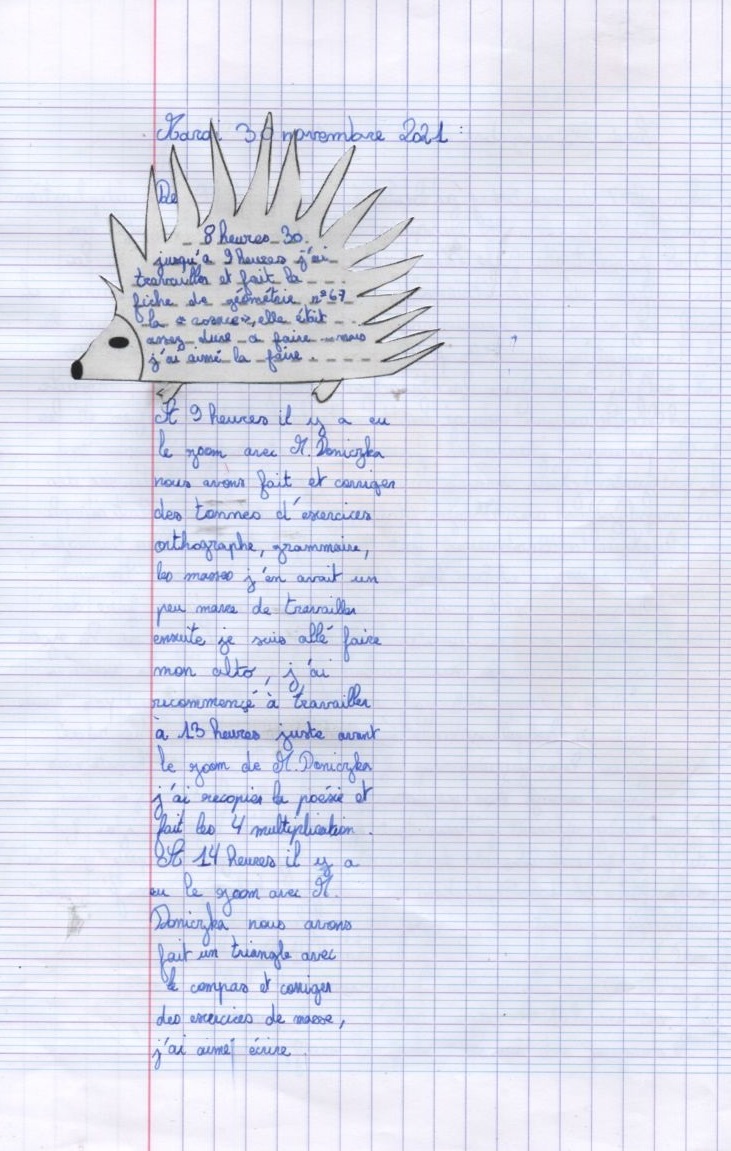 Mardi 30 novembre 2021 :
De
8 heures 30.
jusqu'a 9 heures j'ai
travailler et fait la
fiche de géométrie n°67
la « rosace », elle était
assez dure a faire mais
j'ai aimé la faire.
A 9 heures il y a eu
le zoom avec M. Doniczka
nous avons fait et corriger
des tonnes d'exercices
orthographe, grammaire,
les masses j'en avait un
peu mare de travailler
ensuite je suis allé faire
mon alto, j'ai
recommencé à travailler
à 13 heures juste avant
le zoom de M. Doniczka
j'ai recopier la poésie et
fait les 4 multiplication.
A 14 heures il y a
eu le zoom avec M.
Doniczka nous avons
fait un triangle avec
le compas et corriger
des exercices de masse,
j'ai aimé écrire.